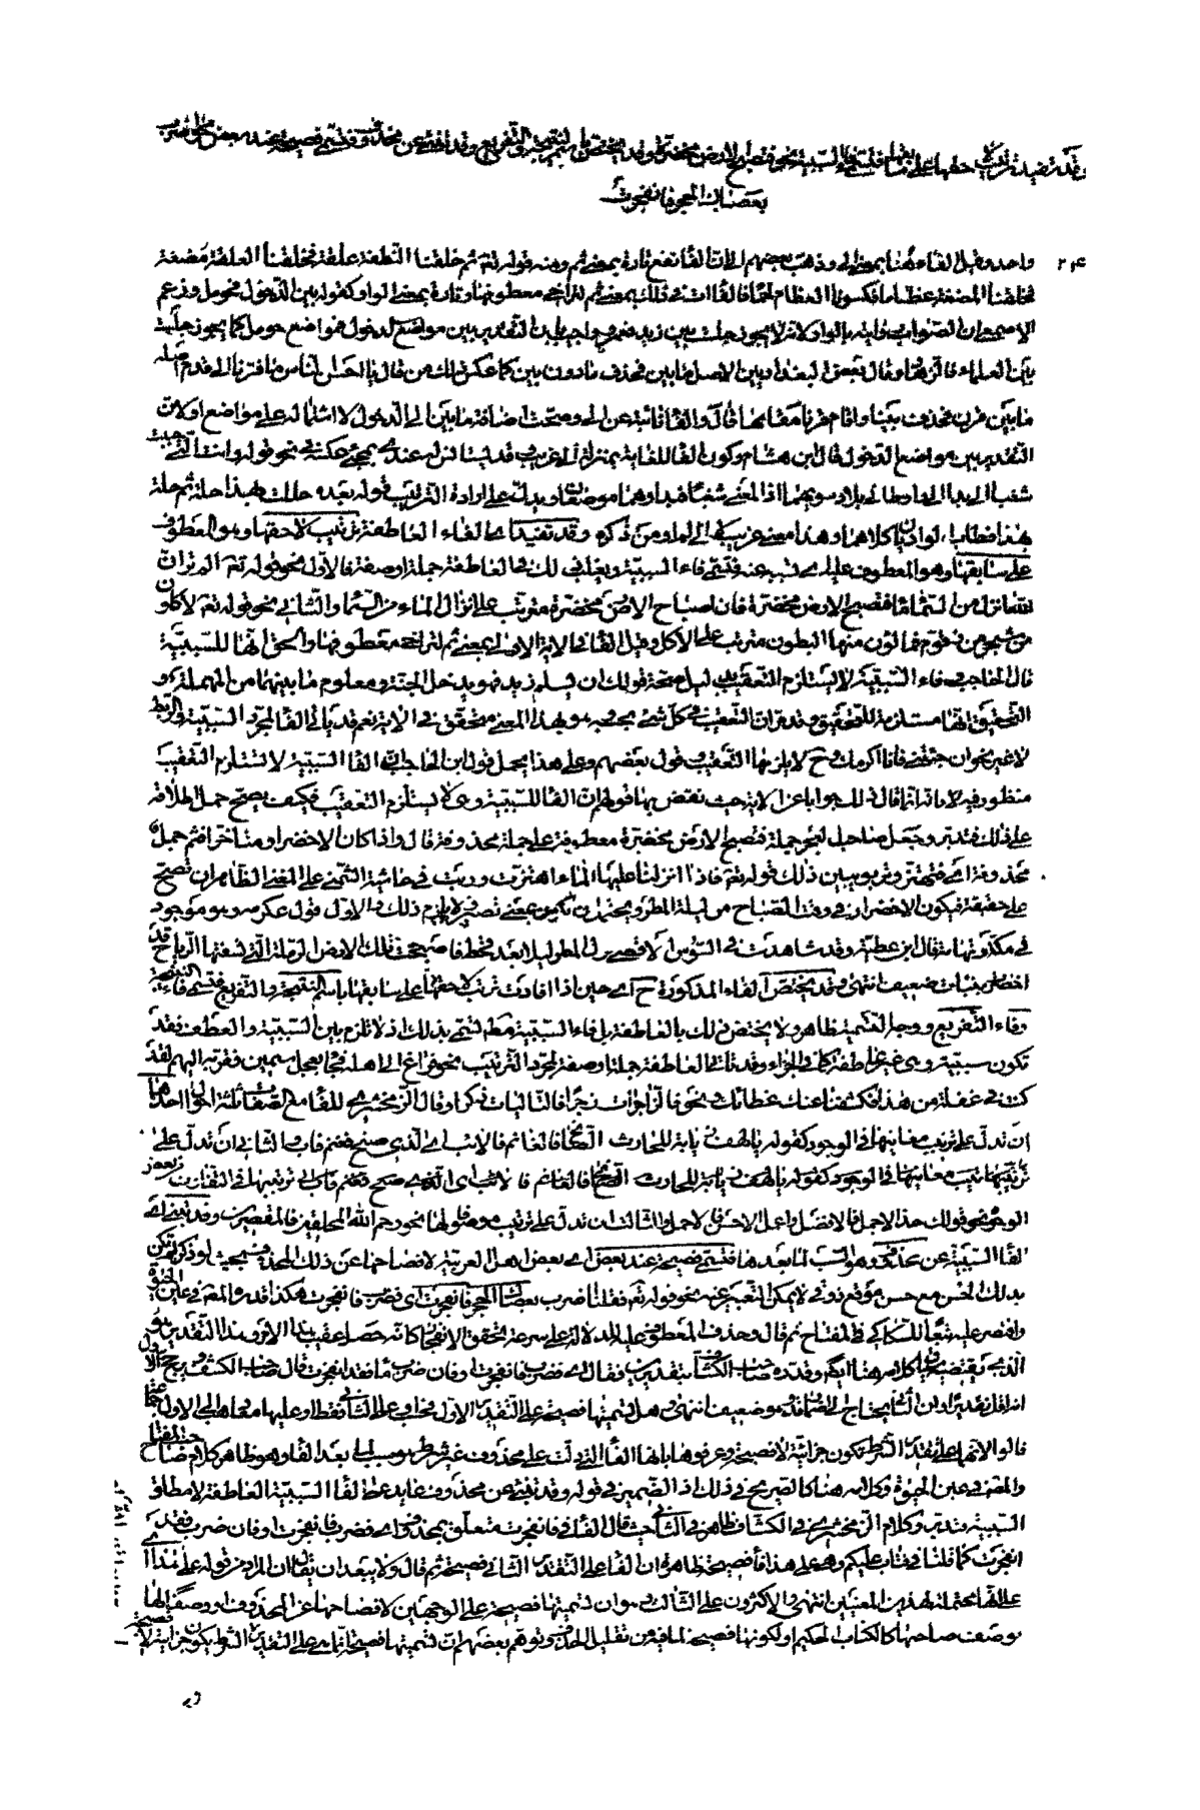 وقد تفيد ترتيب لاحقها على سابقها فتسمى فاء السببية نحو فتصبح الارض مخضرة وقد يختص باسم النتيجة والتفريع وقد تنبئ عن محذوف فتسمى فصيحة عند بعض نحو اضرب
بعصاك الحجر فانفجرت
٢٠٤
واحد وقيل الفاء هنا بمعنى الى وذهب بعضهم الى ان الفا تقع تارة بمعنى ثم ومنه قوله تعالى ثم خلقنا النطفة علقة فخلقنا العلقة مضغة
فخلقنا المضغة عظاما فكسونا العظام لحما فالفاات في ذلك بمعنى ثم لتراخى معطوفها وتارة بمعنى الواو كقوله بين الدخول فحومل وزعم
الاصمعى ان الصواب روايته بالواو لانه لا يجوز جلست بين زيد فعمرو واجيب بان التقدير بين مواضع الدخول فمواضع حومل كما يجوز جلست
بين العلماء فالزهاد وقال بعض البغداديين الاصل ما بين فحذف ما دون بين كما عكس ذلك من قال يا احسن الناس ما قرنا الى قدم اصله
ما بين قرن فحذف بين واقام قرنا مقامها قال والفا نائبة عن الى وصحت اضافة ما بين الى الدخول لاشتماله على مواضع او لان
التقدير بين مواضع الدخول قال ابن هشام وكون الفا للغاية بمنزلة الى غريب وقد يستانس له عندى بمجئ عكسه في نحو قوله وانت التى حببت
شغبا الى بدا الى واوطانى بلاد سواهما اذ المعنى شغبا فبدا وهما موضعان ويدل على ارادة الترتيب قوله بعده حللت بهذا حلة ثم حلة
بهذا فطاب الواديان كلاهما وهذا معنى غريب لالى لم ار من ذكره وقد تفيد اى الفاء العاطفة ترتيب لاحقها وهو المعطوف
على سابقها وهو المعطوف عليه اى تسببه عنه فتسمى فاء السببية ويغلب ذلك في العاطفة جملة او صفة فالاول نحو قوله تعالى الم تر ان
الله انزل من السماء ماء فتصبح الارض مخضرة فان اصباح الارض مخضرة مترتب على انزال الماء من السماء والثانى نحو قوله تعالى لآكلون
من شجر من زقوم فمالئون منها البطون مترتب على الاكل وقيل الفا في الاية الاولى بمعنى ثم لتراخى معطوفها والحق انها للسببية
قال ابن الحاجب فاء السببية لا يستلزم التعقيب بدليل صحة قولك ان يسلم زيد فهو يدخل الجنة ومعلوم ما بينهما من المهملة و
التحقيق انها مستلزمة للتحقيق وقد مر ان التعقيب في كل شئ بحسبه وبهذا المعنى متحقق في الاية نعم قد ياتى الفا لمجرد السببية والربط
لا غير نحو ان جئتنى فانا اكرمك وح لا يلزمها التعقيب وقول بعضهم وعلى هذا يحمل قول ابن الحاجب ان الفا السببية لا تستلزم التعقيب
منظور فيه لانه انما قال ذلك جوابا عن الاية حيث نقض بها قولهم ان الفا للسببية وهى لا يستلزم التعقيب فكيف يصح حمل اطلاقه
على ذلك فتدبر وجعل صاحب البحر جملة فتصبح الارض مخضرة معطوفة على جملة محذوفة قال واذا كان الاخضرار متاخرا فثم جمل
محذوفة اى فتهتز وتربو يبين ذلك قوله تعالى فاذا انزلنا عليها الماء اهتزت وربت في حاشية الشمنى على المغنى الظاهر ان تصبح
على حقيقته فيكون الاخضرار في وقت الصباح من ليلة المطر ويحتمل ان يكون بمعنى تصير فلا يلزم ذلك وفى الاول قول عكرمه وهو موجود
في مكة وتهامة قال ابن عطية وقد شاهدت في السوس الاقصى نزل المطر ليلا بعد قحط فاصبحت تلك الارض الرملة التى نسفتها الرياح قد
اخضرت بنبات ضعيف انتهى وقد يختص الفاء المذكورة ح اى حين اذا افادت ترتب لاحقها على سابقها باسم النتيجة والتفريع فتسمى فاء النتيجة
وفاء التفريع ووجه التسمية ظاهر ولا يختص ذلك بالعاطفة بل فاء السببية مط تسمى بذلك اذ لا تلازم بين السببية والعطف فقد
تكون سببية وهى غير عاطفة كفاء الجزاء وقد تاتى العاطفة جملة او صفة لمجرد الترتيب نحو فراغ الى اهله فجاء بعجل سمين فقربه اليهم لقد
كنت في غفلة من هذا فكشفنا عنك غطاءك ونحو فالزاجرات زجرا فالتاليات ذكرا وقال الزمخشرى للفا مع الصفات ثلثة احوال احدها
ان تدل على ترتيب معانيها في الوجود كقوله يا لهف زيابة للحارث الصابح فالغانم فالائب اى الذى صبح فغنم فاب والثانى ان تدل على
ترتيبها في التفاوت من بعض
الوجوه نحو قولك خذ الاكمل فالافضل واعمل الاحسن فالاجمل والثالث ان تدل على ترتيب موصوفاتها نحو رحم الله المحلقين فالمقصرين وقد تنبئ اى
الفا السببية عن محذوف وهو السبب لما بعدها فتسمى فصيحة عند بعض اى بعض اهل العربية لافصاحها عن ذلك المحذوف بحيث لو ذكر لم تكن
بذلك الحسن مع حسن موقع ذوقى لا يمكن التعبير عنه نحو قوله تعالى فقلنا اضرب بعصاك الحجر فانفجرت اى فضرب فانفجرت هكذا قدره المصنف في عين الحيوة
واقتصر عليه تبعا للسكاكى في المفتاح ثم قال وحذف المعطوف عليه للدلالة على سرعة تحقق الانفجار كانه حصل عقيب الامر وهذا التقدير هو
الذى يقتضيه كلامه هنا ايضا وقدره صاحب الكشاف بتقديرين فقال اى فضرب فانفجرت او فان ضربت فقد انفجرت قال صاحب الكشف ورجح الاول
انه اقل تقديرا وان الثانى يحتاج الى اضمار قد وهو ضعيف انتهى وهل تسميتها فصيحة على التقدير الاول فحسب او على الثانى فقط او عليهما معا ذهب الى الاول جماعة
قالوا لانها على تقدير الشرط تكون جزائية لا فصيحة وعرفوها بانها الفا التى دلت على محذوف غير شرط هو سبب لما بعد الفا وهو ظاهر كلام صاحب المفتاح
والمصنف في عين الحيوة وكلامه هنا كالصريح في ذلك اذ الضمير في قوله وقد تنبئ عن محذوف عايد على الفا السببية العاطفة لا مطلق
السببية فتدبر وكلام الزمخشرى في الكشاف ظاهر في الثانى حيث قال الفا في فانفجرت متعلق بمحذوف اى فضرب فانفجرت او فان ضربت فقد
انفجرت كما قلنا في فتاب عليكم وهى على هذا فاء فصيحة ظاهره ان الفا على التقدير الثانى فصيحة ثم قال ولا يبعد ان يقال ان المراد من قوله على هذا اى
على انها محتملة لهذين المعنيين انتهى والاكثرون على الثالث وهو ان تسميتها فصيحة على الوجهين لافصاحها عن المحذوف او وصفها لها
بوصف صاحبها كالكتاب الحكيم او لكونها فصيحة لما فيه من تقليل الحذف وتوهم بعضهم ان تسميتها فصيحة انما هى على التقدير الشرط يكون جزائية لا فصيحة